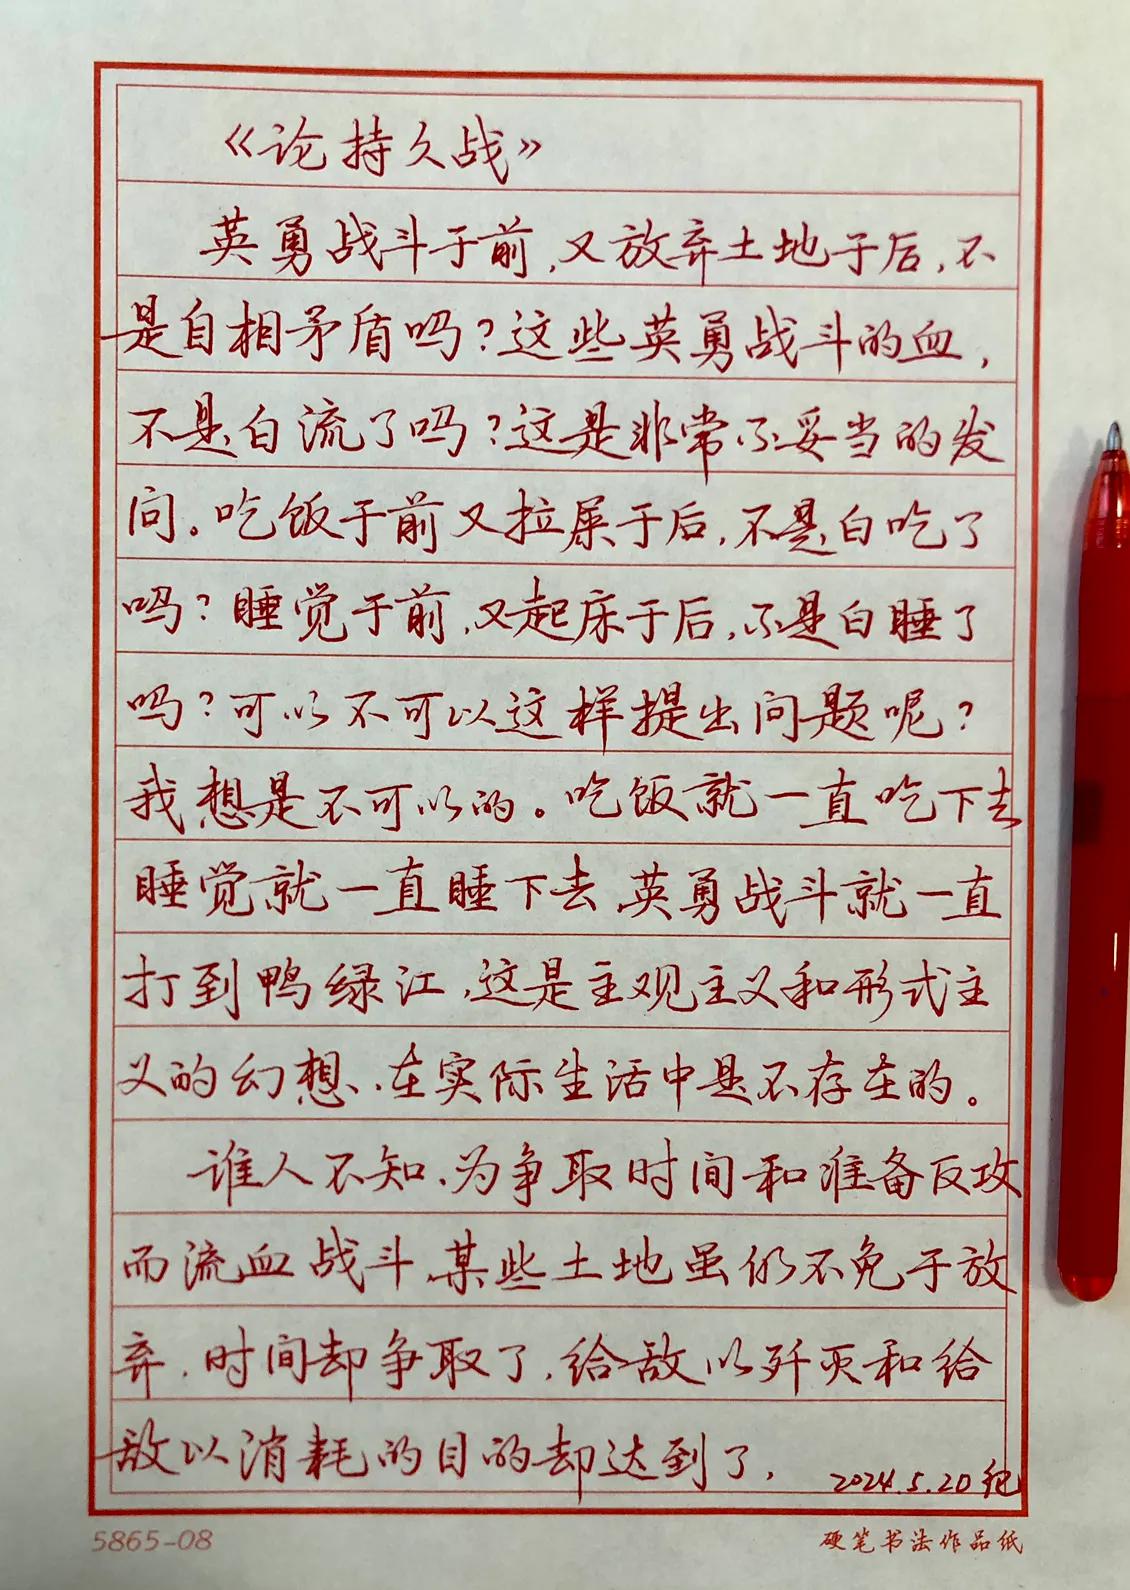 《论持久战》
英勇战斗于前,又放弃土地于后,不
是自相矛盾吗?这些英勇战斗的血,
不是白流了吗?这是非常不妥当的发
问。吃饭于前又拉屎于后,不是白吃了
吗?睡觉于前,又起床于后,不是白睡了
吗?可以不可以这样提出问题呢?
我想是不可以的。吃饭就一直吃下去
睡觉就一直睡下去,英勇战斗就一直
打到鸭绿江,这是主观主义和形式主
义的幻想,在实际生活中是不存在的。
谁人不知,为争取时间和准备反攻
而流血战斗,某些土地虽仍不免于放
弃,时间却争取了,给敌以歼灭和给
敌以消耗的目的却达到了,
2024.5.20
5865-08
硬笔书法作品纸